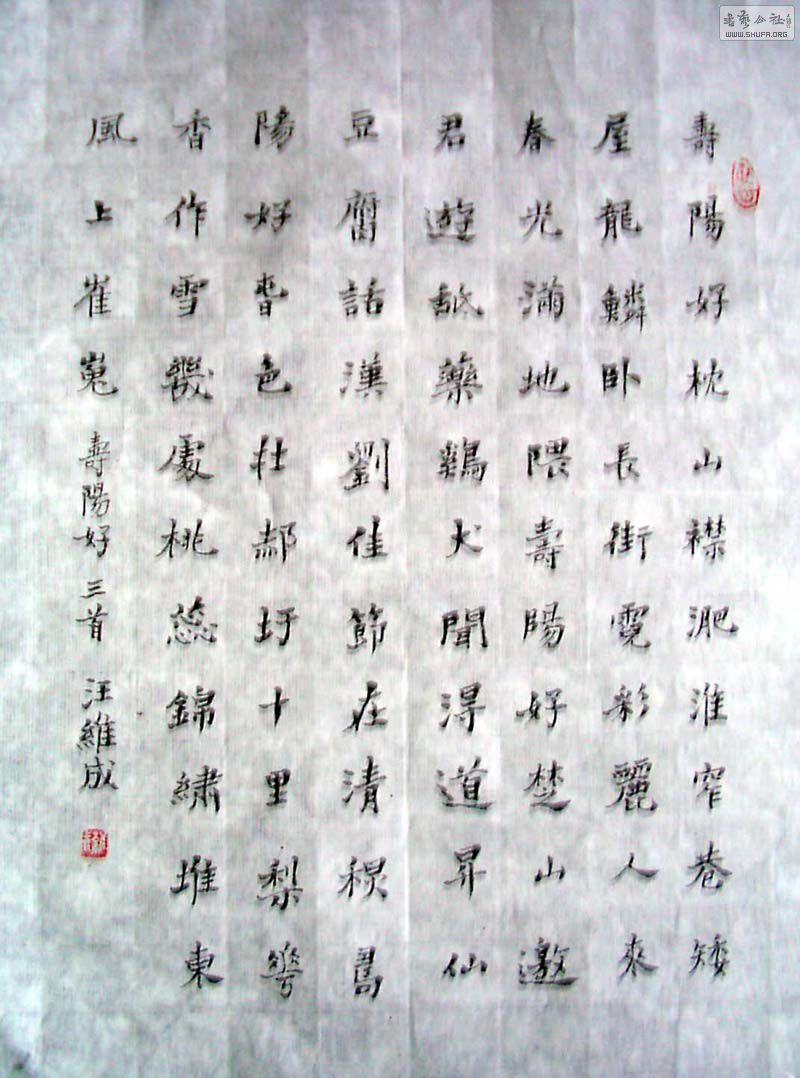 壽陽好枕山襟淝淮窄巷矮
屋龍鱗卧長街霓彩麗人來
春光滿地隈壽陽好楚山邀
君遊舐藥鷄犬聞得道昇仙
豆腐話漢劉佳節在清壽
陽好旾色壯郝圩十里梨
香作雪幾處桃蕊錦繡堆東
風上崔嵬 壽陽好三首 汪維成
书艺公社
WWW.SHUFA.ORG